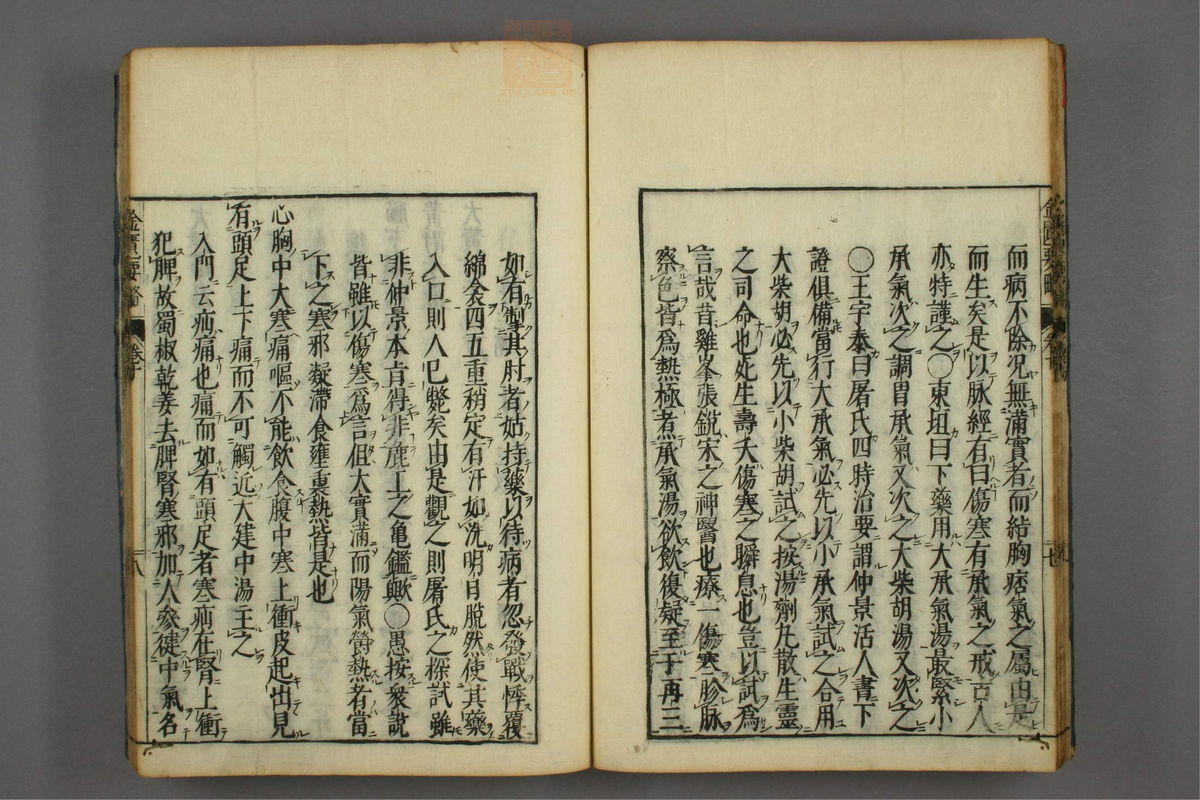 而病不除况無滿實者而結胸痞氣之屬由是
而生矣是以脉經有曰傷寒有承氣之戒古人
亦特謹之〇東垣曰下藥用大承氣湯最緊小
承氣次之調胃承氣又次之大柴胡湯又次之
〇王宇泰曰屠氏四時治要謂仲景活人書下
證俱備當行大承氣必先以小承氣試之合用
大柴胡必先以小柴胡試之按湯劑丸散生靈
之司命也死生壽夭傷寒之瞬息也豈以試為
言哉昔雞峯張銳宋之神醫也療一傷寒診脉
察色皆爲熱極煮承氣湯欲飲復疑至于再三
如有掣其肘者姑持藥以待病者忽發戰悸覆
綿衾四五重稍定有汗如洗明日脫然使其藥
入口則人已斃矣由是觀之則屠氏之探試雖
非仲景本㫖得非麁工之亀鑑歟〇愚按衆說
皆雖以傷寒爲言但大實滿而陽氣欝熱者當
下之寒邪凝滯食壅裏熱皆是也
心胸中大寒痛嘔不能飲食腹中寒上衝皮起出見
有頭足上下痛而不可觸近大建中湯主之
入門云疝痛也痛而如有頭足者寒疝在腎上衝
犯脾故蜀椒乾姜去脾腎寒邪加人參健中氣名
金匱要略 卷十
七
金匱要略 卷十
八